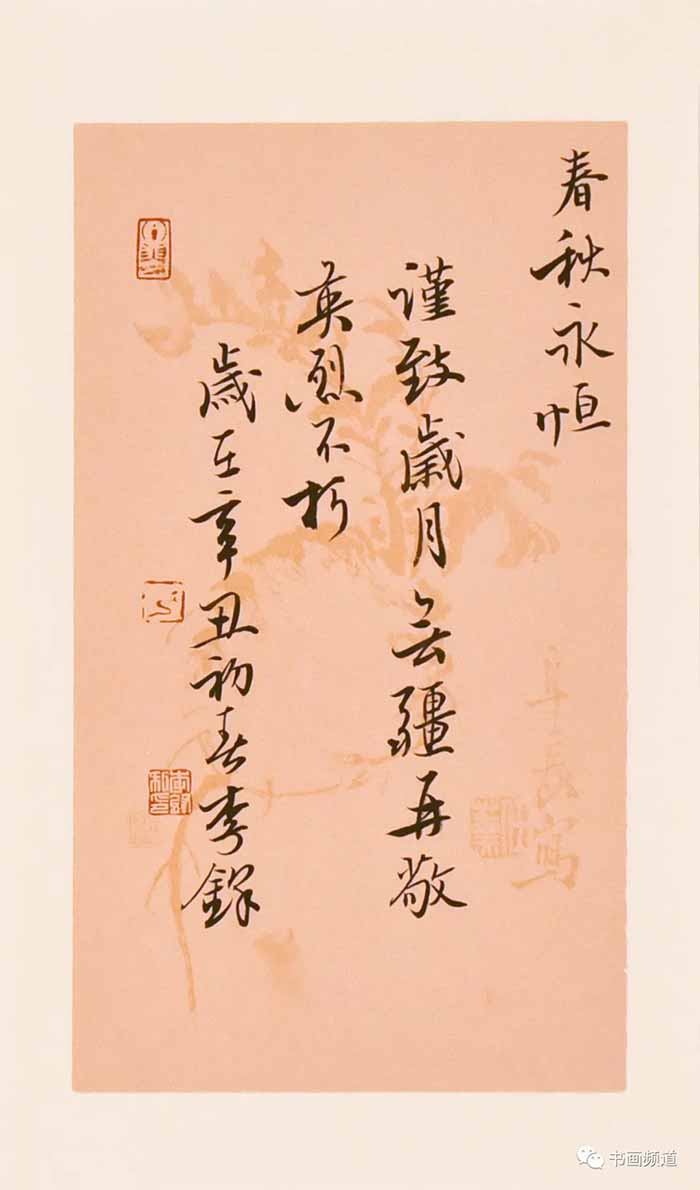 春秋永恒
谨致岁月无疆再敬
英烈不朽
歲在辛丑初春李鐸
书画频道